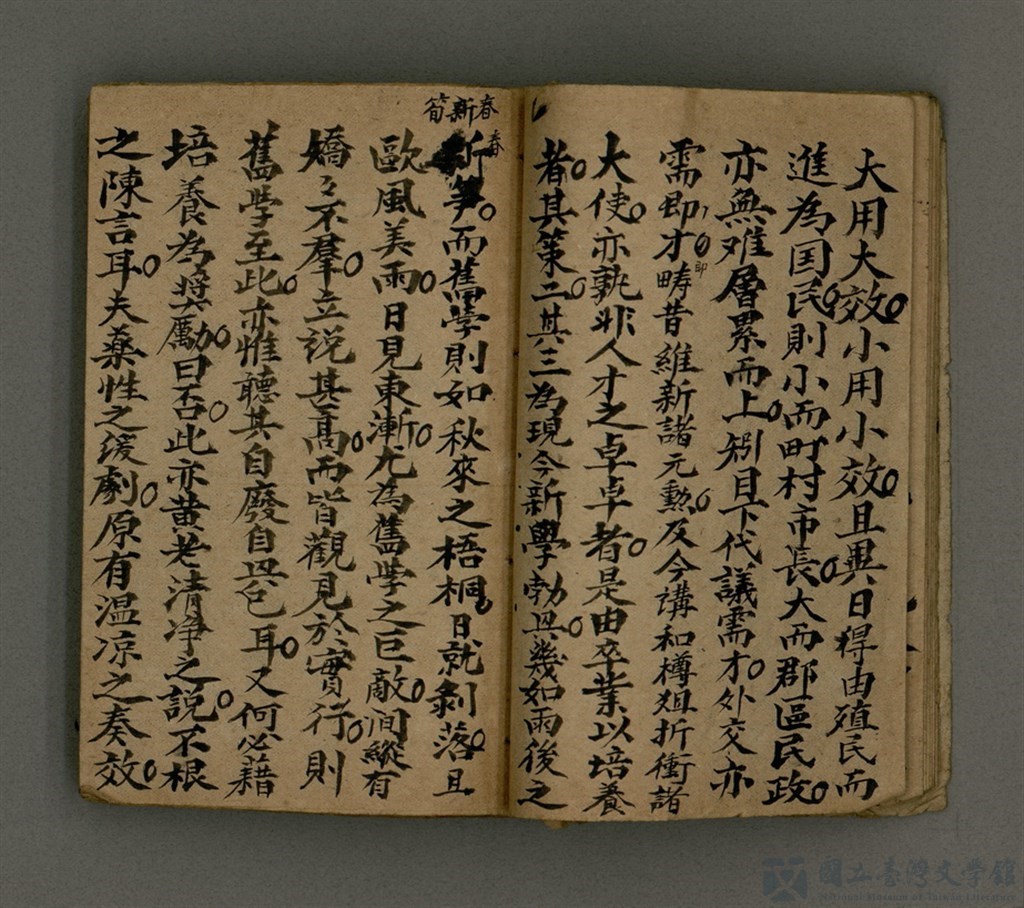 大用大效。小用小效。且異日得由殖民而
進為国民。則小而町村市長。大而郡區民政。
亦無难層累而上。矧目下代議需才。外交亦
需即才。即疇昔維新諸元勲。及今講和樽俎折衝諸
大使。亦孰非人才之卓卓者。是由卒業以培養
者。其策二。其三為現今新學勃興。幾如雨後之
春新筍
春
新筝。而舊學則如秋來之梧桐。日就剝落。且
歐風美雨。日見東漸。尤為舊学之巨敵。间縱有
矯々不羣。立說甚髙。而皆觀見於實行。則
舊学至此。亦惟聽其自廢自興已耳。又何必藉
培養為奬勵。曰否。此亦黄老清净之說。不根
之陳言耳。夫藥性之缓劇。原有温凉之奏效。
國立臺灣文学館
National Museum of Taiwan Literature